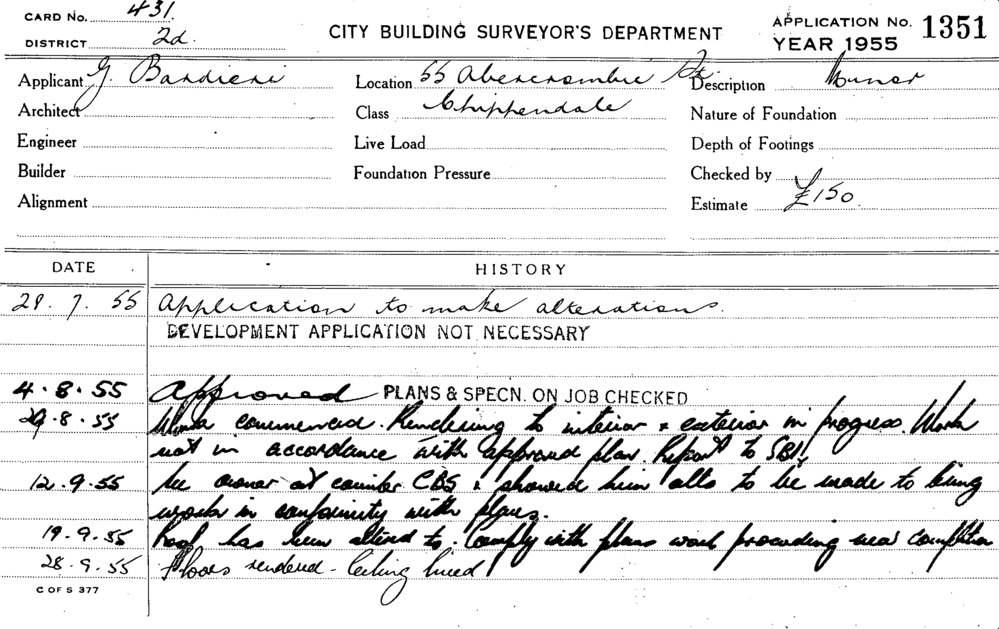 CARD No. 431.
DISTRICT 2d.
CITY BUILDING SURVEYOR'S DEPARTMENT
APPLICATION No. 1351
YEAR 1955
Applicant G. Bandieri Location 55 Abercrombie St. Description Minor
Architect Class Chippendale Nature of Foundation
Engineer Live Load Depth of Footings
Builder Foundation Pressure Checked by
Alignment Estimate £150.
DATE HISTORY
29. 7. 55 Application to make alterations.
DEVELOPMENT APPLICATION NOT NECESSARY
4.8.55 Approved PLANS & SPECN. ON JOB CHECKED
29.8.55 Work commenced. Rendering to interior & exterior in progress. Work
not in accordance with approved plan. Report to SBI.
12.9.55 owner at counter CBS & showed him alts to be made to bring
work in conformity with plans.
19.9.55 Roof has been altered to comply with plans work proceeding near completion
28.9.55 Floors rendered - Ceiling lined
C OF S 377